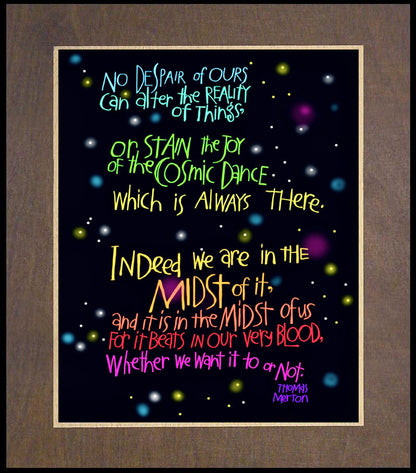 NO DESPAIR of OURS
Can alter the REALITY
of Things,
or STAIN the JOY
of the COSMIC DANCE
which is ALWAYS THERE.
INDeed we are in THE
MIDST of it,
and it is in the MIDST of us
FoR it BEATS IN OUR VeRy BLOOD,
Whether We Want it to or Not.
THOMAS
MERTON